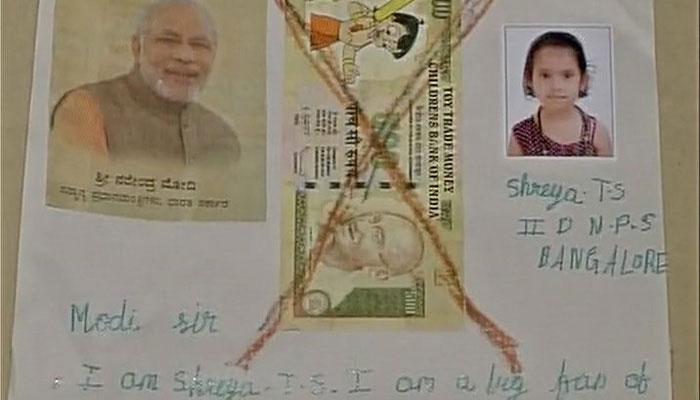 ಶ್ರೀ ನರೇಂದ್ರ ಮೋದಿ
TOY TRADE MONEY
CHILDRENS BANK OF INDIA
Shreya. T. S
II D N. P. S
BANGALORE
Modi sir
I am Shreya. T. S. I am a big fan of